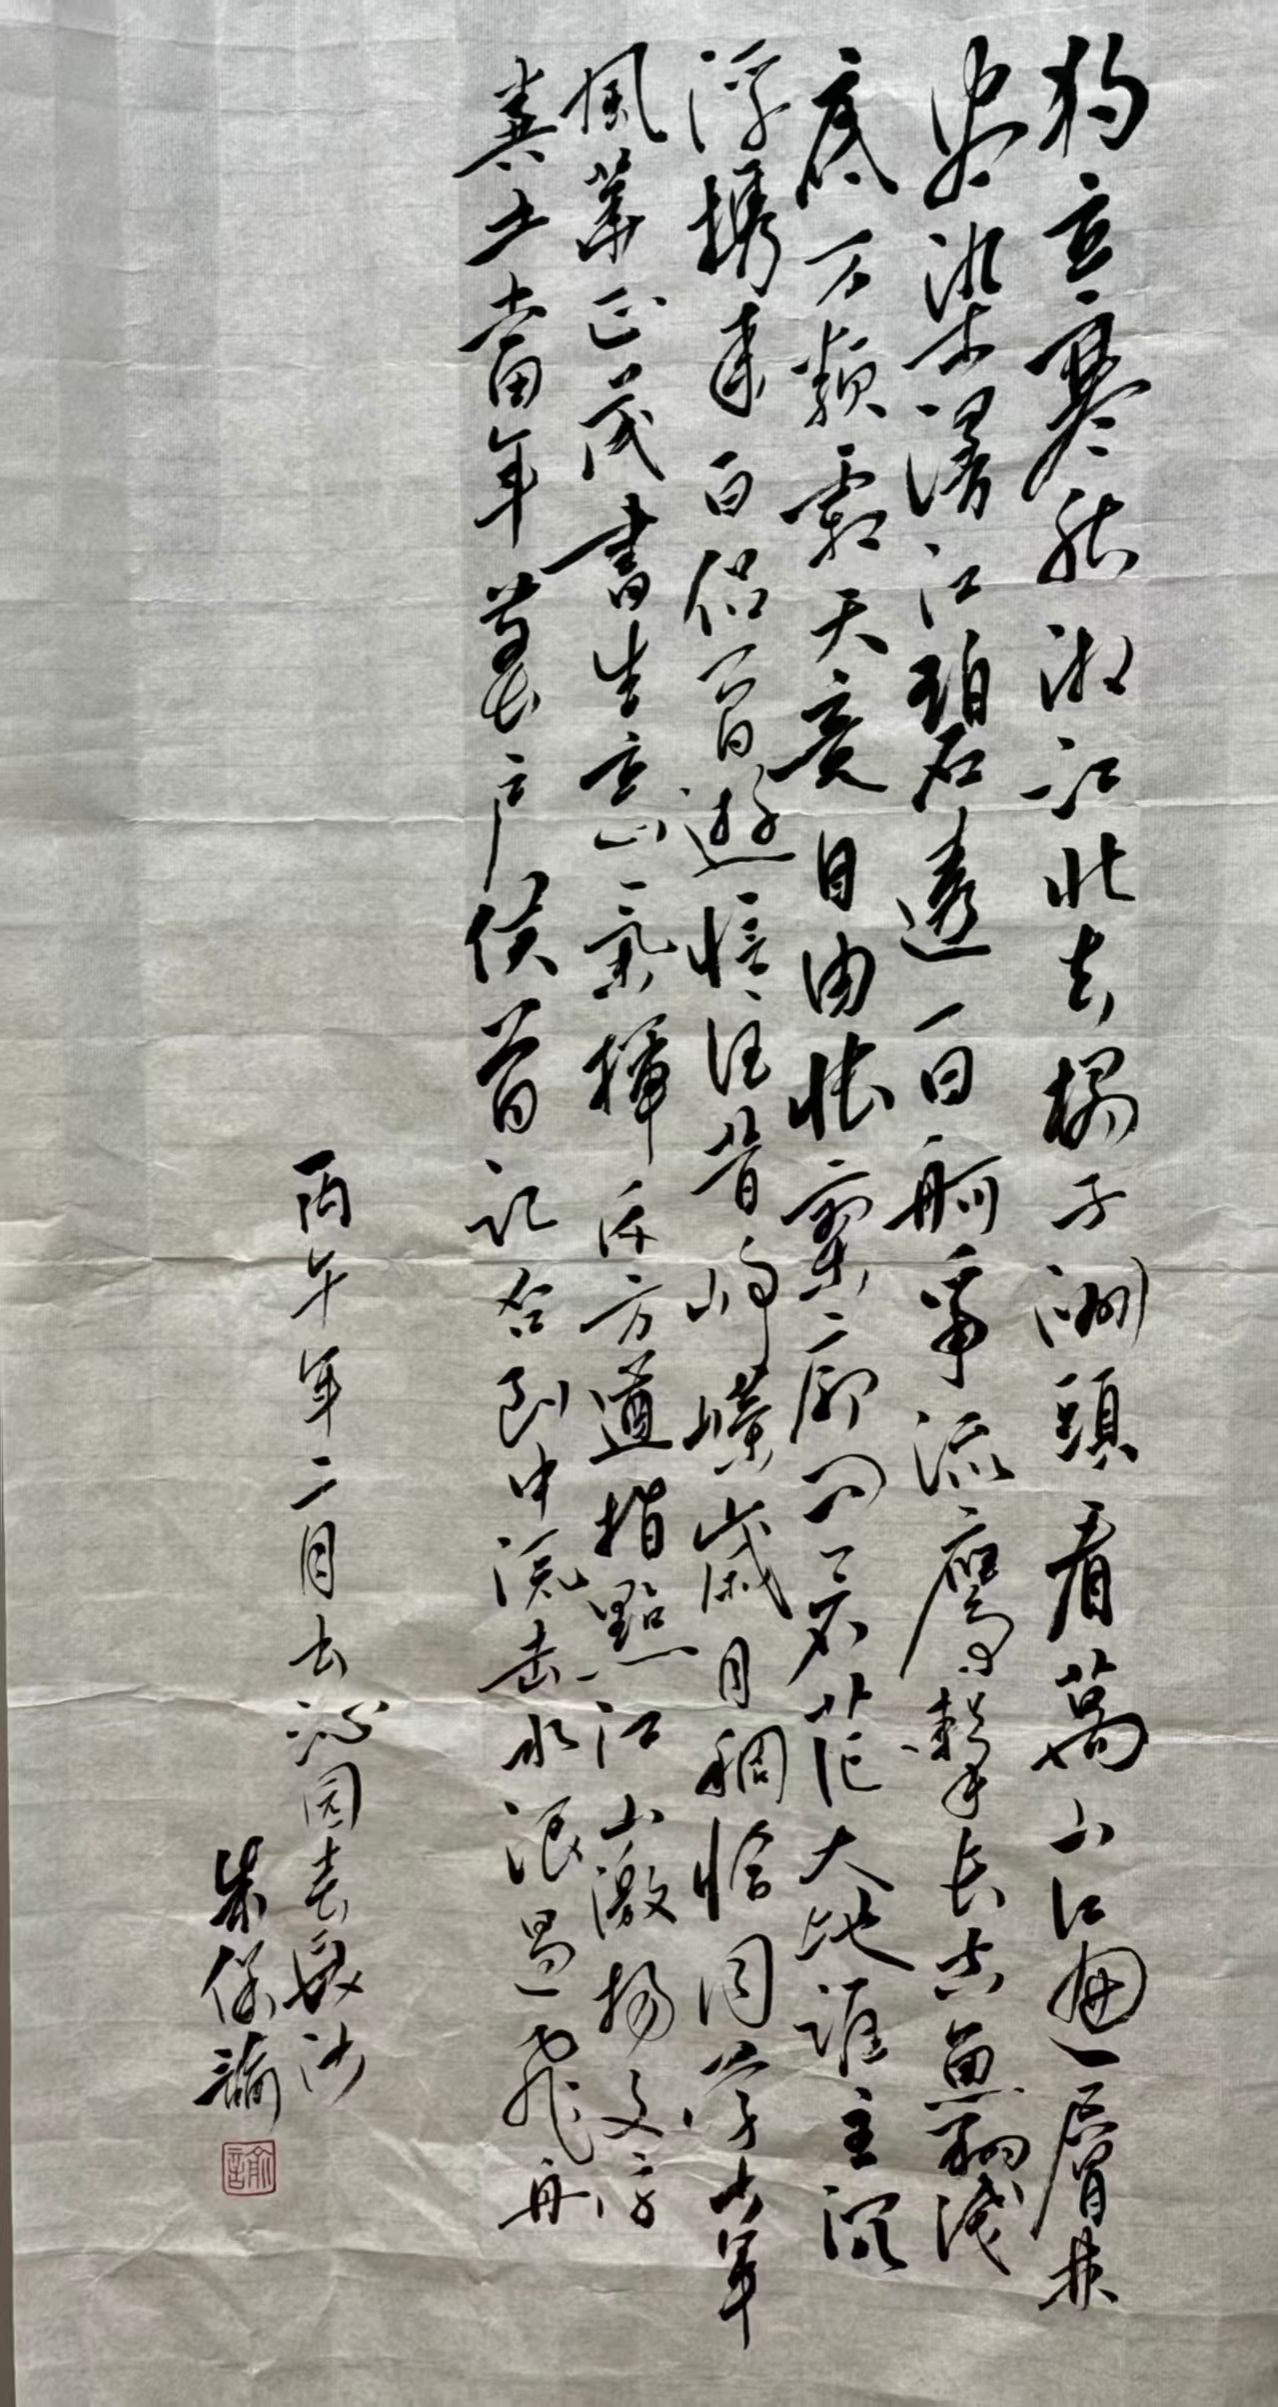 独立寒秋湘江北去橘子洲頭看萬山红遍層林
盡染漫江碧透百舸爭流鷹擊長空魚翔淺
底万類霜天競自由悵寥廓問蒼茫大地誰主沉
浮攜來百侶曾遊憶往昔崢嶸歲月稠恰同學少年
風華正茂書生意氣揮斥方遒指點江山激揚文字
糞土當年萬户侯曾記否到中流击水浪遏飛舟
丙午年二月书沁园春長沙
朱保諭
諭